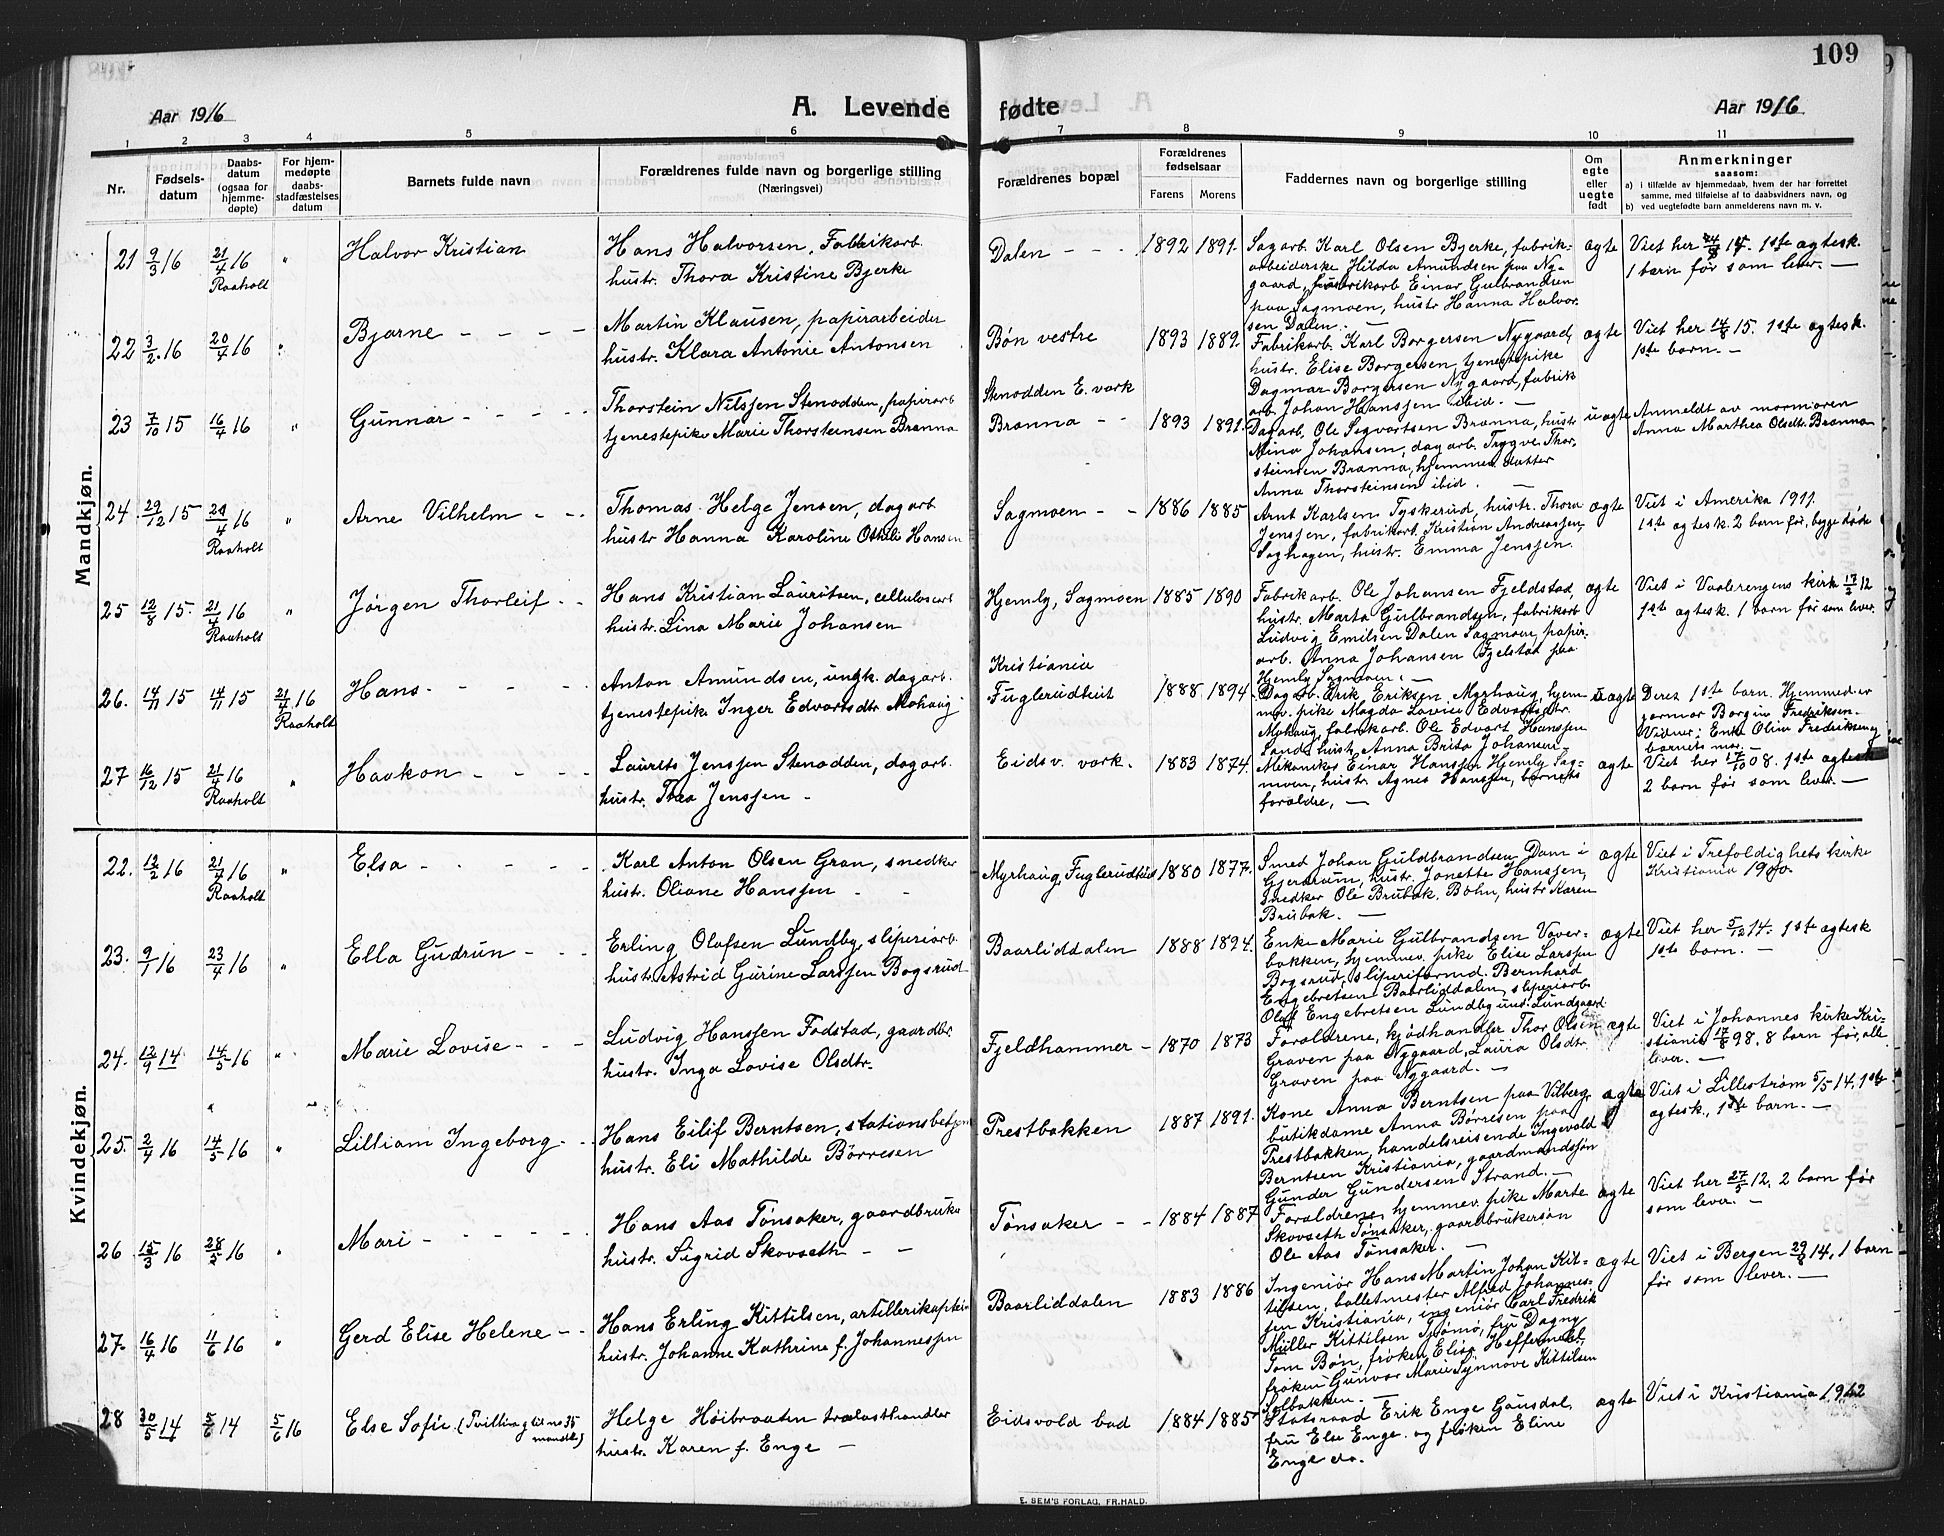 109
Aar 1916
A. Levende fødte
Aar 1916
1 2 3 4 5 6 7 8 9 10 11
Nr.
Fødsels-
datum
Daabs-
datum
(ogsaa for
hjemme-
døpte)
For hjem-
medøpte
daabs-
stadfæstelses
datum
Barnets fulde navn
Forældrenes fulde navn og borgerlige stilling
(Næringsvei)
Forældrenes bopæl
Forældrenes
fødselsaar
Farens Morens
Faddernes navn og borgerlige stilling
Om
egte
eller
uegte
født
Anmerkninger
saasom:
a) i tilfælde av hjemmedaab, hvem der har forrettet
samme, med tilføielse af to daabsvidners navn, og
b) ved uegtefødte barn anmelderens navn m. v.
Mandkjøn.
21 9/3 16 21/4 16 " Halvor Kristian
Raaholt
Hans Halvorsen, Fabrikarb.
hustr. Thora Kristine Bjerke
Dalen - - - 1892 1891.
Sagarb. Karl Olsen Bjerke, fabrik-
arbeiderske Hilda Amundsen paa Ny-
gaard, fabrikarb Einar Gulbrandsen
paa Sagmoen, hustr Hanna Halvor
sen Dalen. -
ægte
Viet her 14. 1ste ægtesk.
1 barn før som lever. -
22 3/2 16 20/4 16 " Bjarne - - - -
Martin Klausen, papirarbeider
hustr. Klara Antonie Antonsen
Bøn vestre 1893 1889.
Fabrikarb. Karl Borgersen Nygaard,
hustr. Elise Borgersen, tjenestepike
Dagmar Borgersen Nygaard, fabrik
arb. Johan Hanssen ibid. -
ægte
Viet her 14/8 15. 1ste ægtesk.
1ste barn. -
23 7/10 15 16/4 16 " Gunnar - - - -
Thorstein Nilssen Stenodden, papirarb
tjenestepike Marie Thorsteinsen Brænna
Stenodden E. værk
Brænna - - 1893 1891.
Dagarb. Ole Segvartsen Brænna, hustr
Mina Johansen, dagarb. Trygve Thor-
steinsen Brænna, hjemmev. datter
Anna Thorsteinsen ibid. -
uægte
Anmeldt av mormoren
Anna Marthea Olsdtr. Brænna
24. 29/12 15 24/4 16 " Arne Vilhelm - -
Raaholt
Thomas Helge Jensen, dagarb
hustr Hanna Karoline Othili Hansen
Sagmoen - - 1886 1885
Arnt Karlsen Tyskerud, hustr. Thora
Jenssen, fabrikarb. Kristian Andreassen,
Saghagen, hustr. Emma Jenssen.
ægte
Viet i Amerika 1911.
1ste ægtesk. 2 barn før, begge døde
25 12/8 15. 21/4 16 " Jørgen Thorleif - -
Raaholt
Hans Kristian Lauritsen, cellulosearb
hustr. Lina Marie Johansen
Hjemly, Sagmoen 1885 1890
Fabrikarb. Ole Johansen Fjeldstad,
hustr. Marta Gulbrandsen, fabrikarb
Ludvig Emilsen Dalen Sagmoen, papir-
arb. Anna Johansen Fjelstad paa
Hjemly Sagmoen. -
ægte
Viet i Vaalerengens kirke 17/3 12
1ste ægtesk. 1 barn før som lever.
26. 14/11 15 14/11 15 21/4 16 Hans - - - -
Raaholt
Anton Amundsen, ungk. dagarb.
tjenestepike Inger Edvartsdtr Mohaug
Kristiania
Fuglerudkvit 1888 1894.
Dagarb. Erik Eriksen Myrhaug, hjem
mev. pike Magda Lovise Edvartsdtr
Myhaug, fabrikarb. Ole Edvart Hanssen
Sand, hustr. Anna Brita Johansen -
uægte
Deres 1ste barn. Hjemmed. av
jormor Borgin Fredriksen.
Vidner: Enke Oline Fredriksen og
barnets mor. -
27 16/12 15 21/4 16 " Haakon - - - -
Raaholt
Laurits Jenssen Stenodden, dagarb.
hustr. Thea Jenssen -
Eidsv. værk. 1883 1874.
Mekaniker Einar Hanssen Hjemly Sag-
moen, hustr. Agnes Hanssen, barnets
forældre, -
ægte
Viet her 17/10 08. 1ste ægtesk
2 barn før som lever. -
Kvindekjøn.
22. 12/2 16 21/4 16 " Elsa - - - -
Raaholt
Karl Anton Olsen Gran, snedker
hustr. Oliane Hanssen - -
Myrhaug, Fuglerudkvit 1880 1877.
Smed Johan Guldbrandsen Dam i
Gjerdrum, hustr. Jonette Hanssen,
snedker Ole Brubak. Bøhn, hustr. Karen
Brubak. -
ægte
Viet i Trefoldighets kirke
Kristiania 1900.
23. 9/1 16 23/4 16 " Ella Gudrun - - -
Erling Olafsen Lundby, sliperiarb.
hustr. Astrid Gurine Larssen Bogsrud
Baarliddalen 1888 1894.
Enke Marie Gulbrandsen Væver-
bakken, hjemmev. pike Elise Larssen
Bogsrud, sliperiformd. Bernhard
Engebretsen Baarliddalen, sliperiarb.
Olaf Engebretsen Lundby und. Lundgaard
ægte
Viet her 5/12 14. 1ste ægtesk
1ste barn. -
24. 12/9 14 14/5 16 " Marie Lovise - - -
Ludvig Hanssen Fodstad, gaardbr.
hustr. Inga Lovise Olsdtr.
Fjeldhammer - 1870 1873
Forældrene, kjødhandler Thor Olsen
Graven paa Nygaard, Laura Olsdtr.
Graven paa Nygaard. -
ægte
Viet i Johannes kirke Kri-
stiania 17/8 98. 8 barn før, alle
lever. -
25. 2/4 16 14/5 16 " Lilliam Ingeborg - -
Hans Eilif Berntsen, stationsbetjen
hustr. Eli Mathilde Børresen
Prestbakken 1887 1891.
Kone Anna Berntsen paa Vilberg,
butikdame Anna Børresen paa
Prestbakken, handelsreisende Ingevald
Berntsen Kristiania, gaardmandssøn
Gunder Gundersen Strand. -
ægte
Viet i Lillestrøm 5/5 14. 1ste
ægtesk., 1ste barn. -
26 15/3 16 28/5 16 " Mari - - - - -
Hans Aas Tønsaker, gaardbruke
hustr. Sigrid Skovseth - -
Tønsaker - - 1884 1887
Forældrene, hjemmev. pike Marte
Skovseth Tønsaker, gaardbrukersøn
Ole Aas Tønsaker. -
ægte
Viet her 27/5 12. 2 barn før
som lever. -
27. 16/4 16 11/6 16 " Gerd Elise Helene - -
Hans Erling Kittilsen, artillerikaptein
hustr. Johanne Kathrine f. Johannessen
Baarliddalen 1883 1886
Ingeniør Hans Martin Johan Kit-
tilsen, balletmester Alfred Johannes-
sen Kristiania, ingeniør Carl Fredrik
Müller Kittilsen Tjømø, fru Dagny
Tom Bøn, frøken Elise Heffermehl,
frøken Gunvor Marie Synnøve Kittilsen
Solbakken. -
ægte
Viet i Bergen 29/8 14, 1 barn
før som lever. -
28 30/5 14 5/6 14 5/6 16 Else Sofie. (Tvilling til no 35
mandkj.)
Helge Høibraaten trælasthandler
hustr. Karen f. Enge -
Eidsvold bad 1884 1885
Statsraad Erik Enge Gausdal,
fru Else Enge og frøken Eline
Enge do.
ægte
Viet i Kristiania 1912
E. SEM'S FORLAG, FR.HALD.